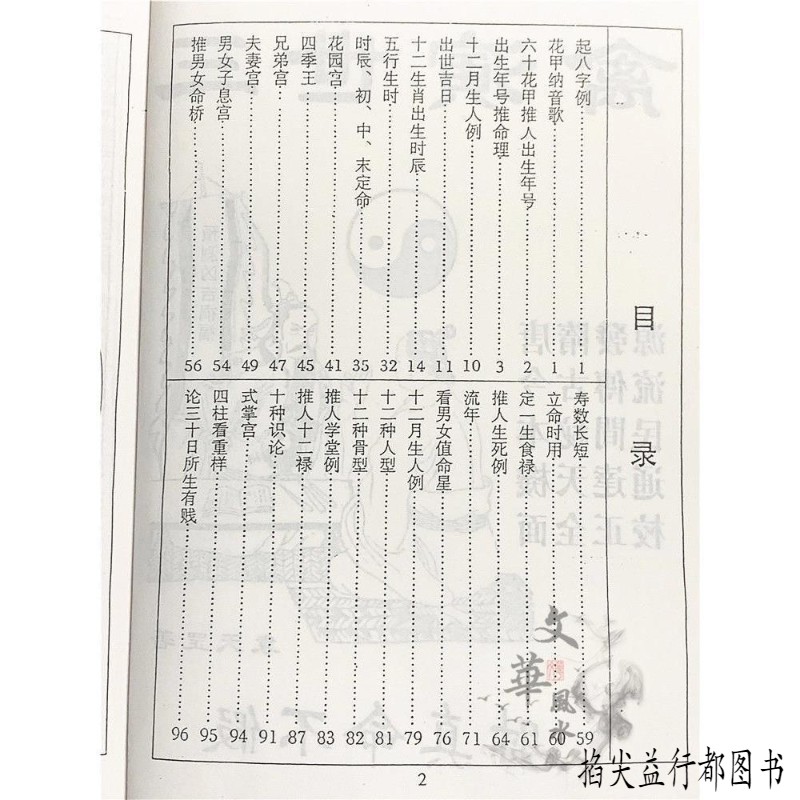 目录
起八字例 1
花甲纳音歌 1
六十花甲推人出生年号 2
出生年号推命理 3
十二月生人例 10
出世吉日 11
十二生肖出生时辰 14
五行生时 32
时辰、初、中、末定命 35
花园宫 41
四季王 45
兄弟宫 47
夫妻宫 49
男女子息宫 54
推男女命桥 56
寿数长短 59
立命时用 60
定一生食禄 61
推人生死例 64
流年 71
看男女值命星 76
十二月生人例 79
十二种人型 81
十二种骨型 82
推人学堂例 83
推人十二禄 87
十种识论 91
式掌宫 94
四柱看重样 95
论三十日所生有贱 96
2
源發隋唐
流傳古今
民間成本
通達天機
校正全面
真命不假
文華風水
掐尖益行都图书